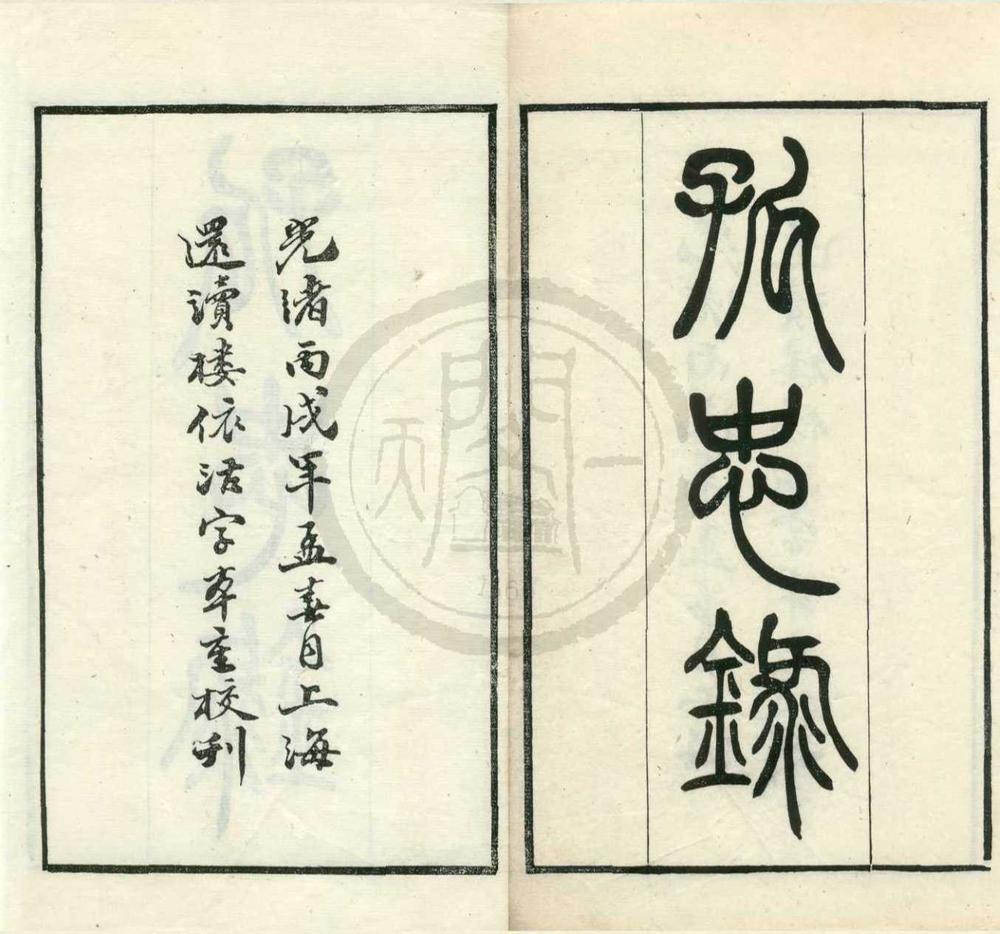 孤忠錄
光緒丙戌年孟春月上海
還讀樓依活字本重校刊
天一閣